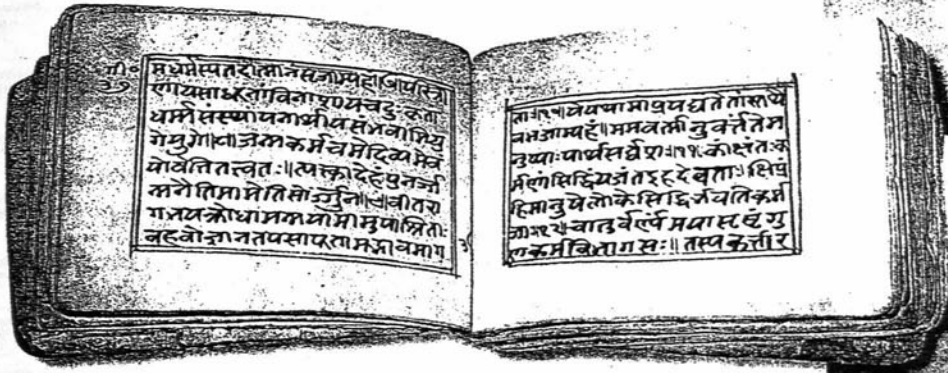 गी॰
३७
मधर्मस्यतदात्मानंसृजाम्यहं॥७॥परित्रा
णायसाधूनांविनाशायचदुःकृतां
धर्मसंस्थापनार्थायसंभवामियु
गेयुगे॥८॥जन्मकर्मचमेदिव्यमेवं
योवेत्तितत्त्वतः॥त्यक्त्कादेहंपुनर्ज
न्मनैतिमामेतिसोर्जुन॥९॥वीतरा
गभयक्रोधामन्मयामामुपाश्रिताः
बहवोज्ञानतपसापूतामद्भावमाग
ताः॥१०॥येयथामांप्रपद्यंतेतांस्तथै
वभजाम्यहं॥ममवर्त्मानुवर्त्तंतेम
नुष्याःपार्थसर्वशः॥११॥कांक्षंतःक
र्मणांसिद्धिंयजंतइहदेवताः॥क्षिप्रं
हिमानुषेलोकेसिद्धिर्भवतिकर्म
जा॥१२॥चातुर्वर्ण्यंमयासृष्टंगु
णकर्मविभागसः॥तस्यकर्त्तार